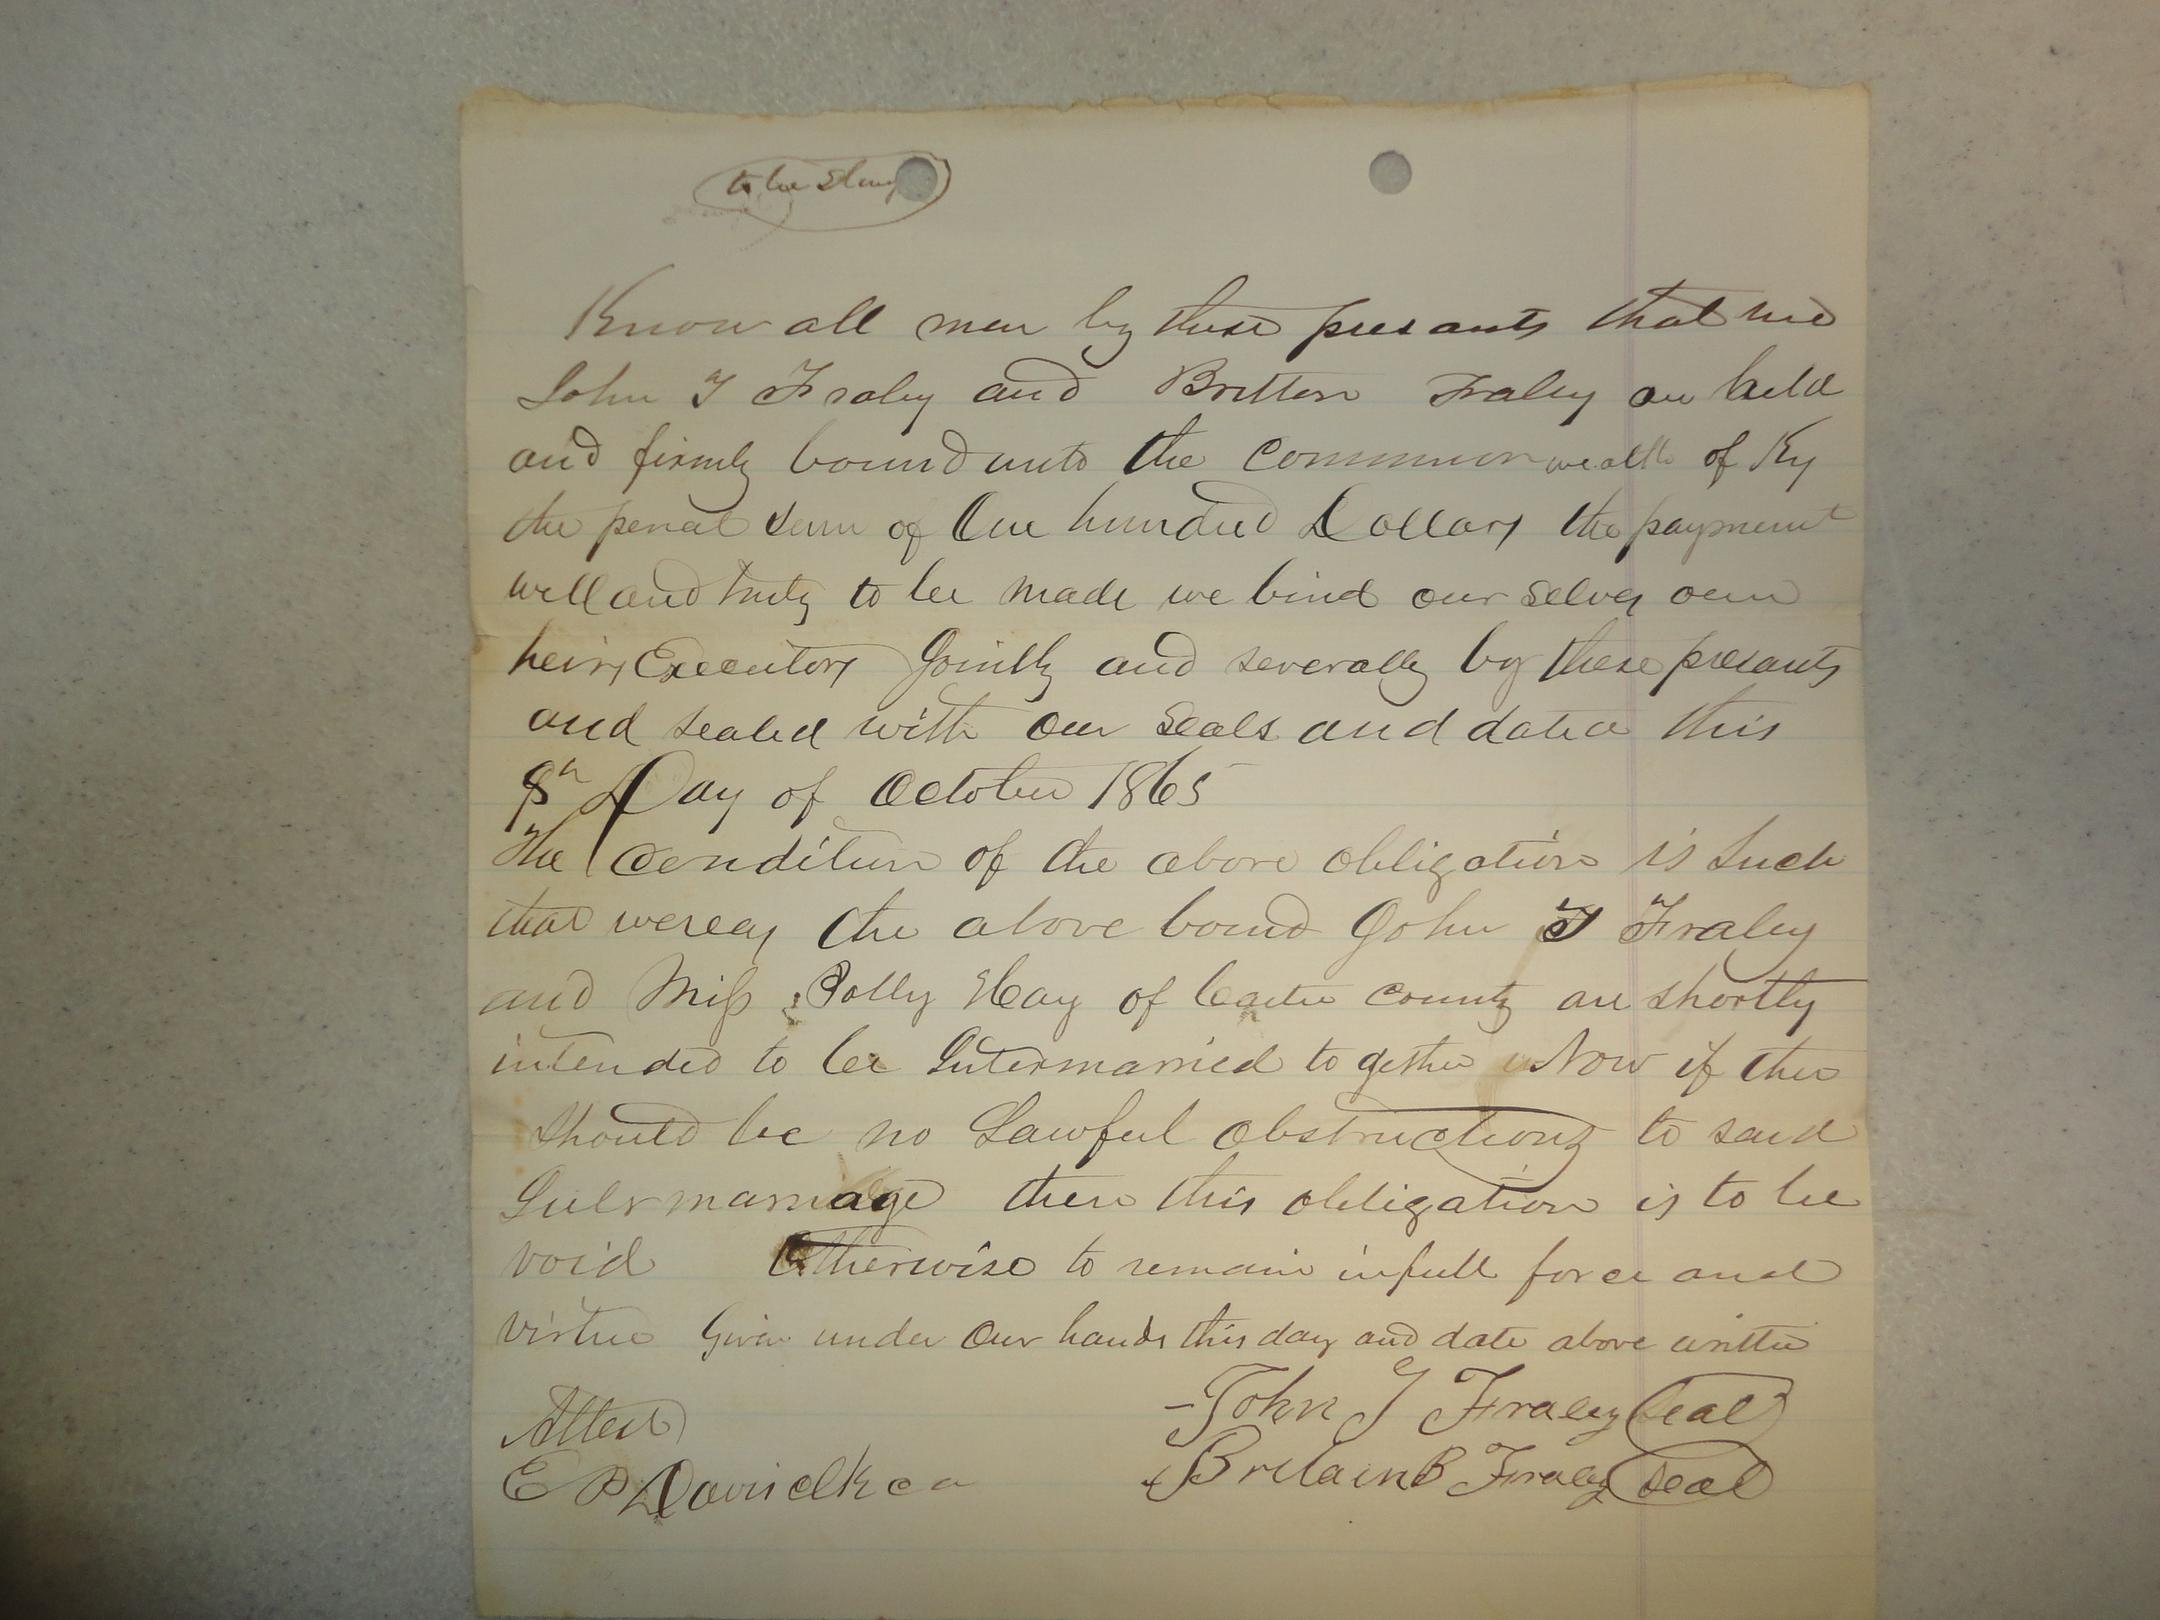 to be Stamp
Know all men by these presants that we
John T Fraley and Britton Fraley are held
and firmly bound unto the Commonwealth of Ky
the penal sum of One hundred Dollars the payment
well and truly to be made we bind our selves our
heirs, Executors Jointly and severally by these presants
and sealed with our seals and dated this
8th Day of October 1865
The condition of the above obligation is Such
that wereas the above bound John T Fraley
and Miss Polly Hay of Carter county are shortly
intended to be Intermarried to gether Now if ther
should be no Lawful obstructions to said
marriage then this obligation is to be
void Otherwise to remain in full force and
virtue Given under our hands this day and date above written
John T Fraley Seal
Attest
Britain B Fraley Seal
E P Davis clk c c